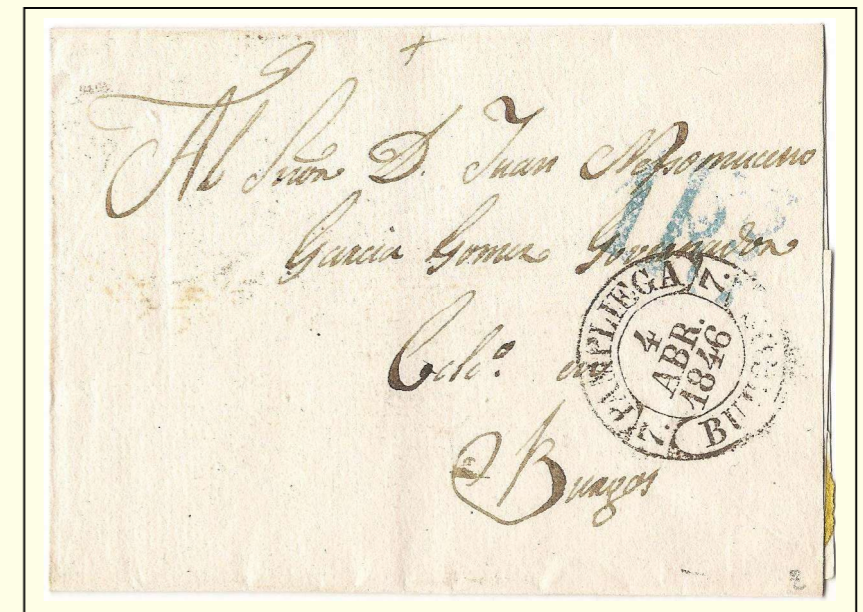 Al Señor D. Juan Nepomuceno
Garcia Gomez Governador
Ecle.º en
Burgos
PAMPLIEGA 7.
4
ABR.
1846
BURGOS 7.